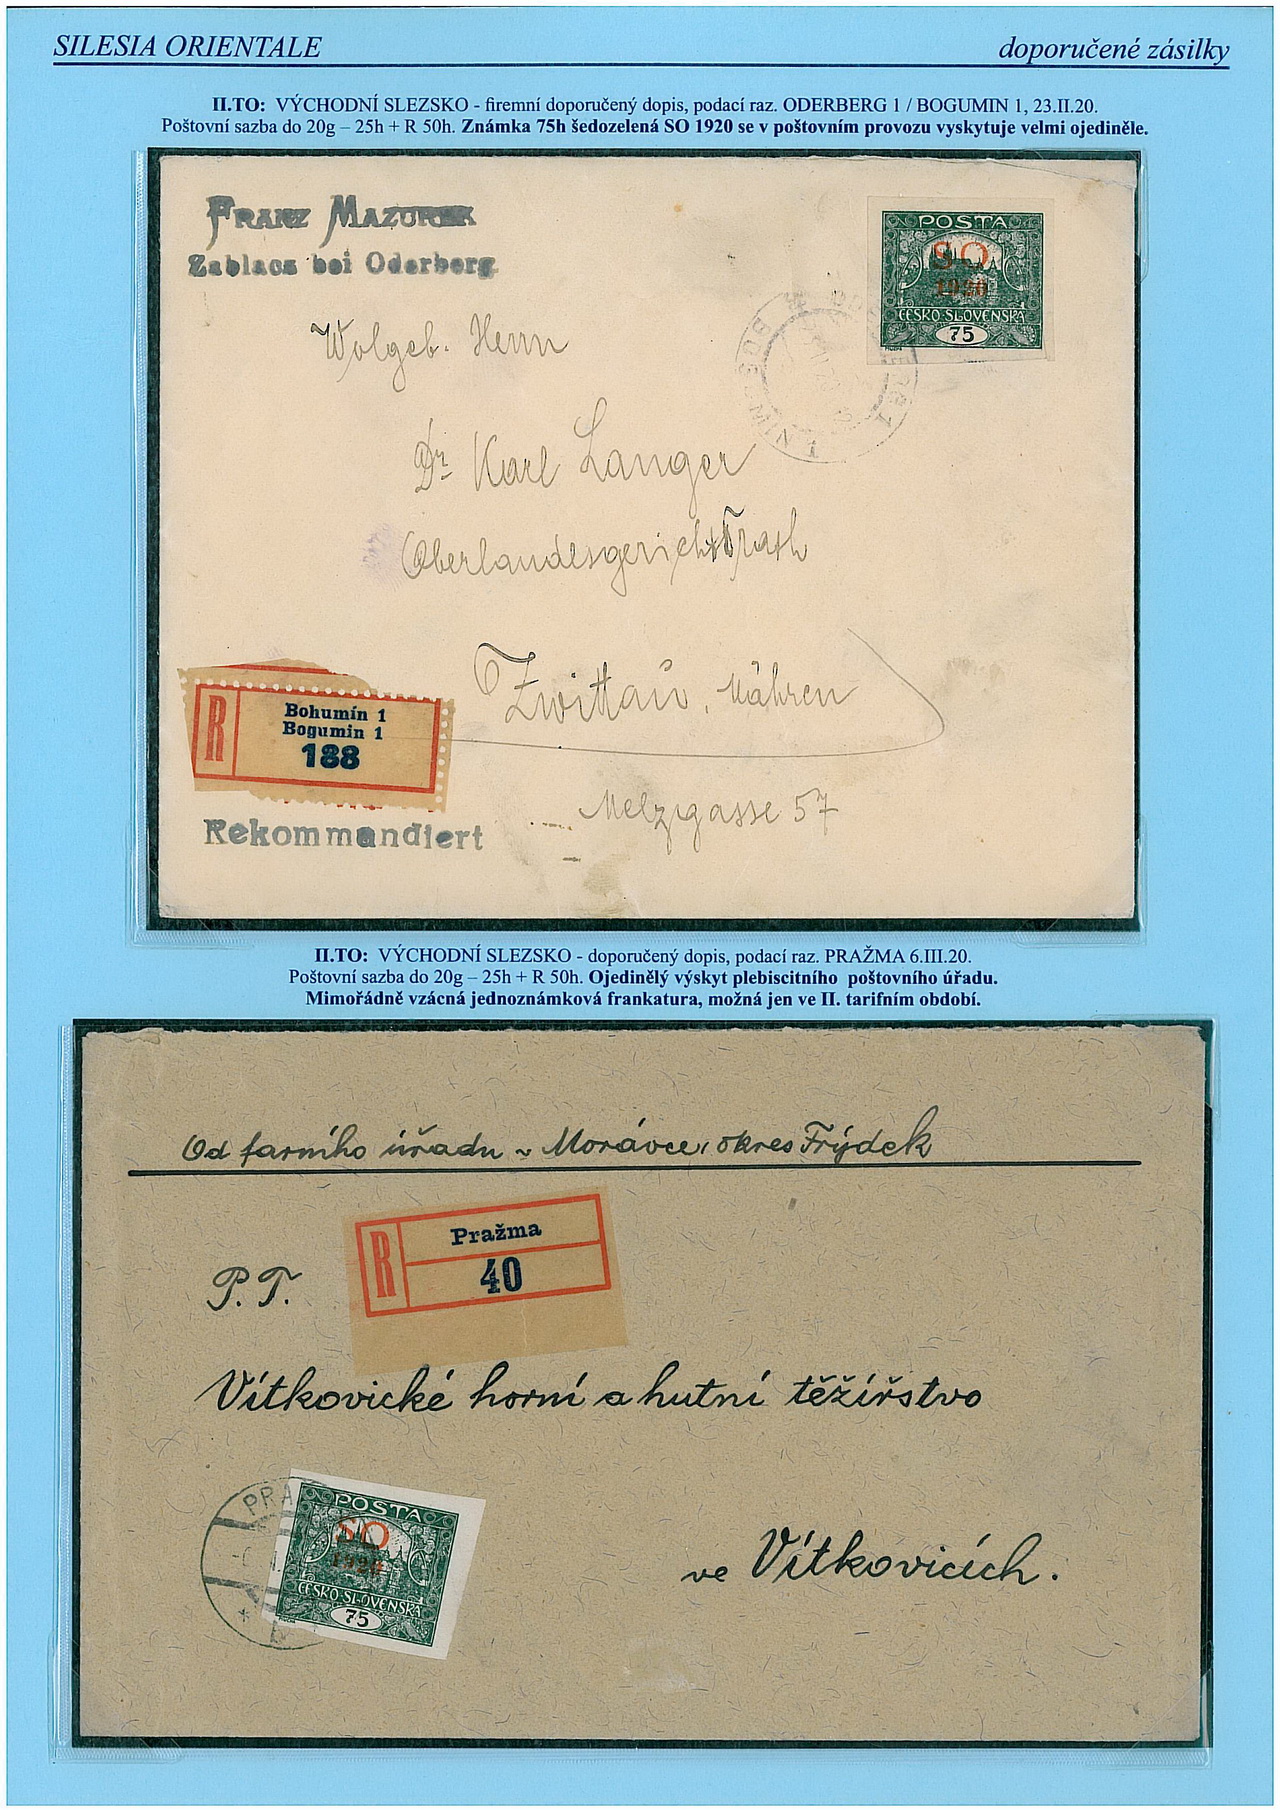 SILESIA ORIENTALE
doporučené zásilky
II.TO: VÝCHODNÍ SLEZSKO - firemní doporučený dopis, podací raz. ODERBERG 1 / BOGUMIN 1, 23.II.20.
Poštovní sazba do 20g – 25h + R 50h. Známka 75h šedozelená SO 1920 se v poštovním provozu vyskytuje velmi ojediněle.
FRANZ MAZUREK
Zablacz bei Oderberg
POSTA
SO
1920
ČESKO-SLOVENSKÁ
75
Wolgeb. Herrn
Dr Karl Langer
Oberlandesgerichtsrath
Zwittau, Mähren
R
Bohumín 1
Bogumin 1
188
Melzgasse 57
Rekommandiert
II.TO: VÝCHODNÍ SLEZSKO - doporučený dopis, podací raz. PRAŽMA 6.III.20.
Poštovní sazba do 20g – 25h + R 50h. Ojedinělý výskyt plebiscitního poštovního úřadu.
Mimořádně vzácná jednoznámková frankatura, možná jen ve II. tarifním období.
Od farního úřadu v Morávce, okres Frýdek
R
Pražma
40
P. T.
Vítkovické horní a hutní těžířstvo
PRA
POSTA
SO
1920
ČESKO-SLOVENSKÁ
75
ve Vítkovicích.